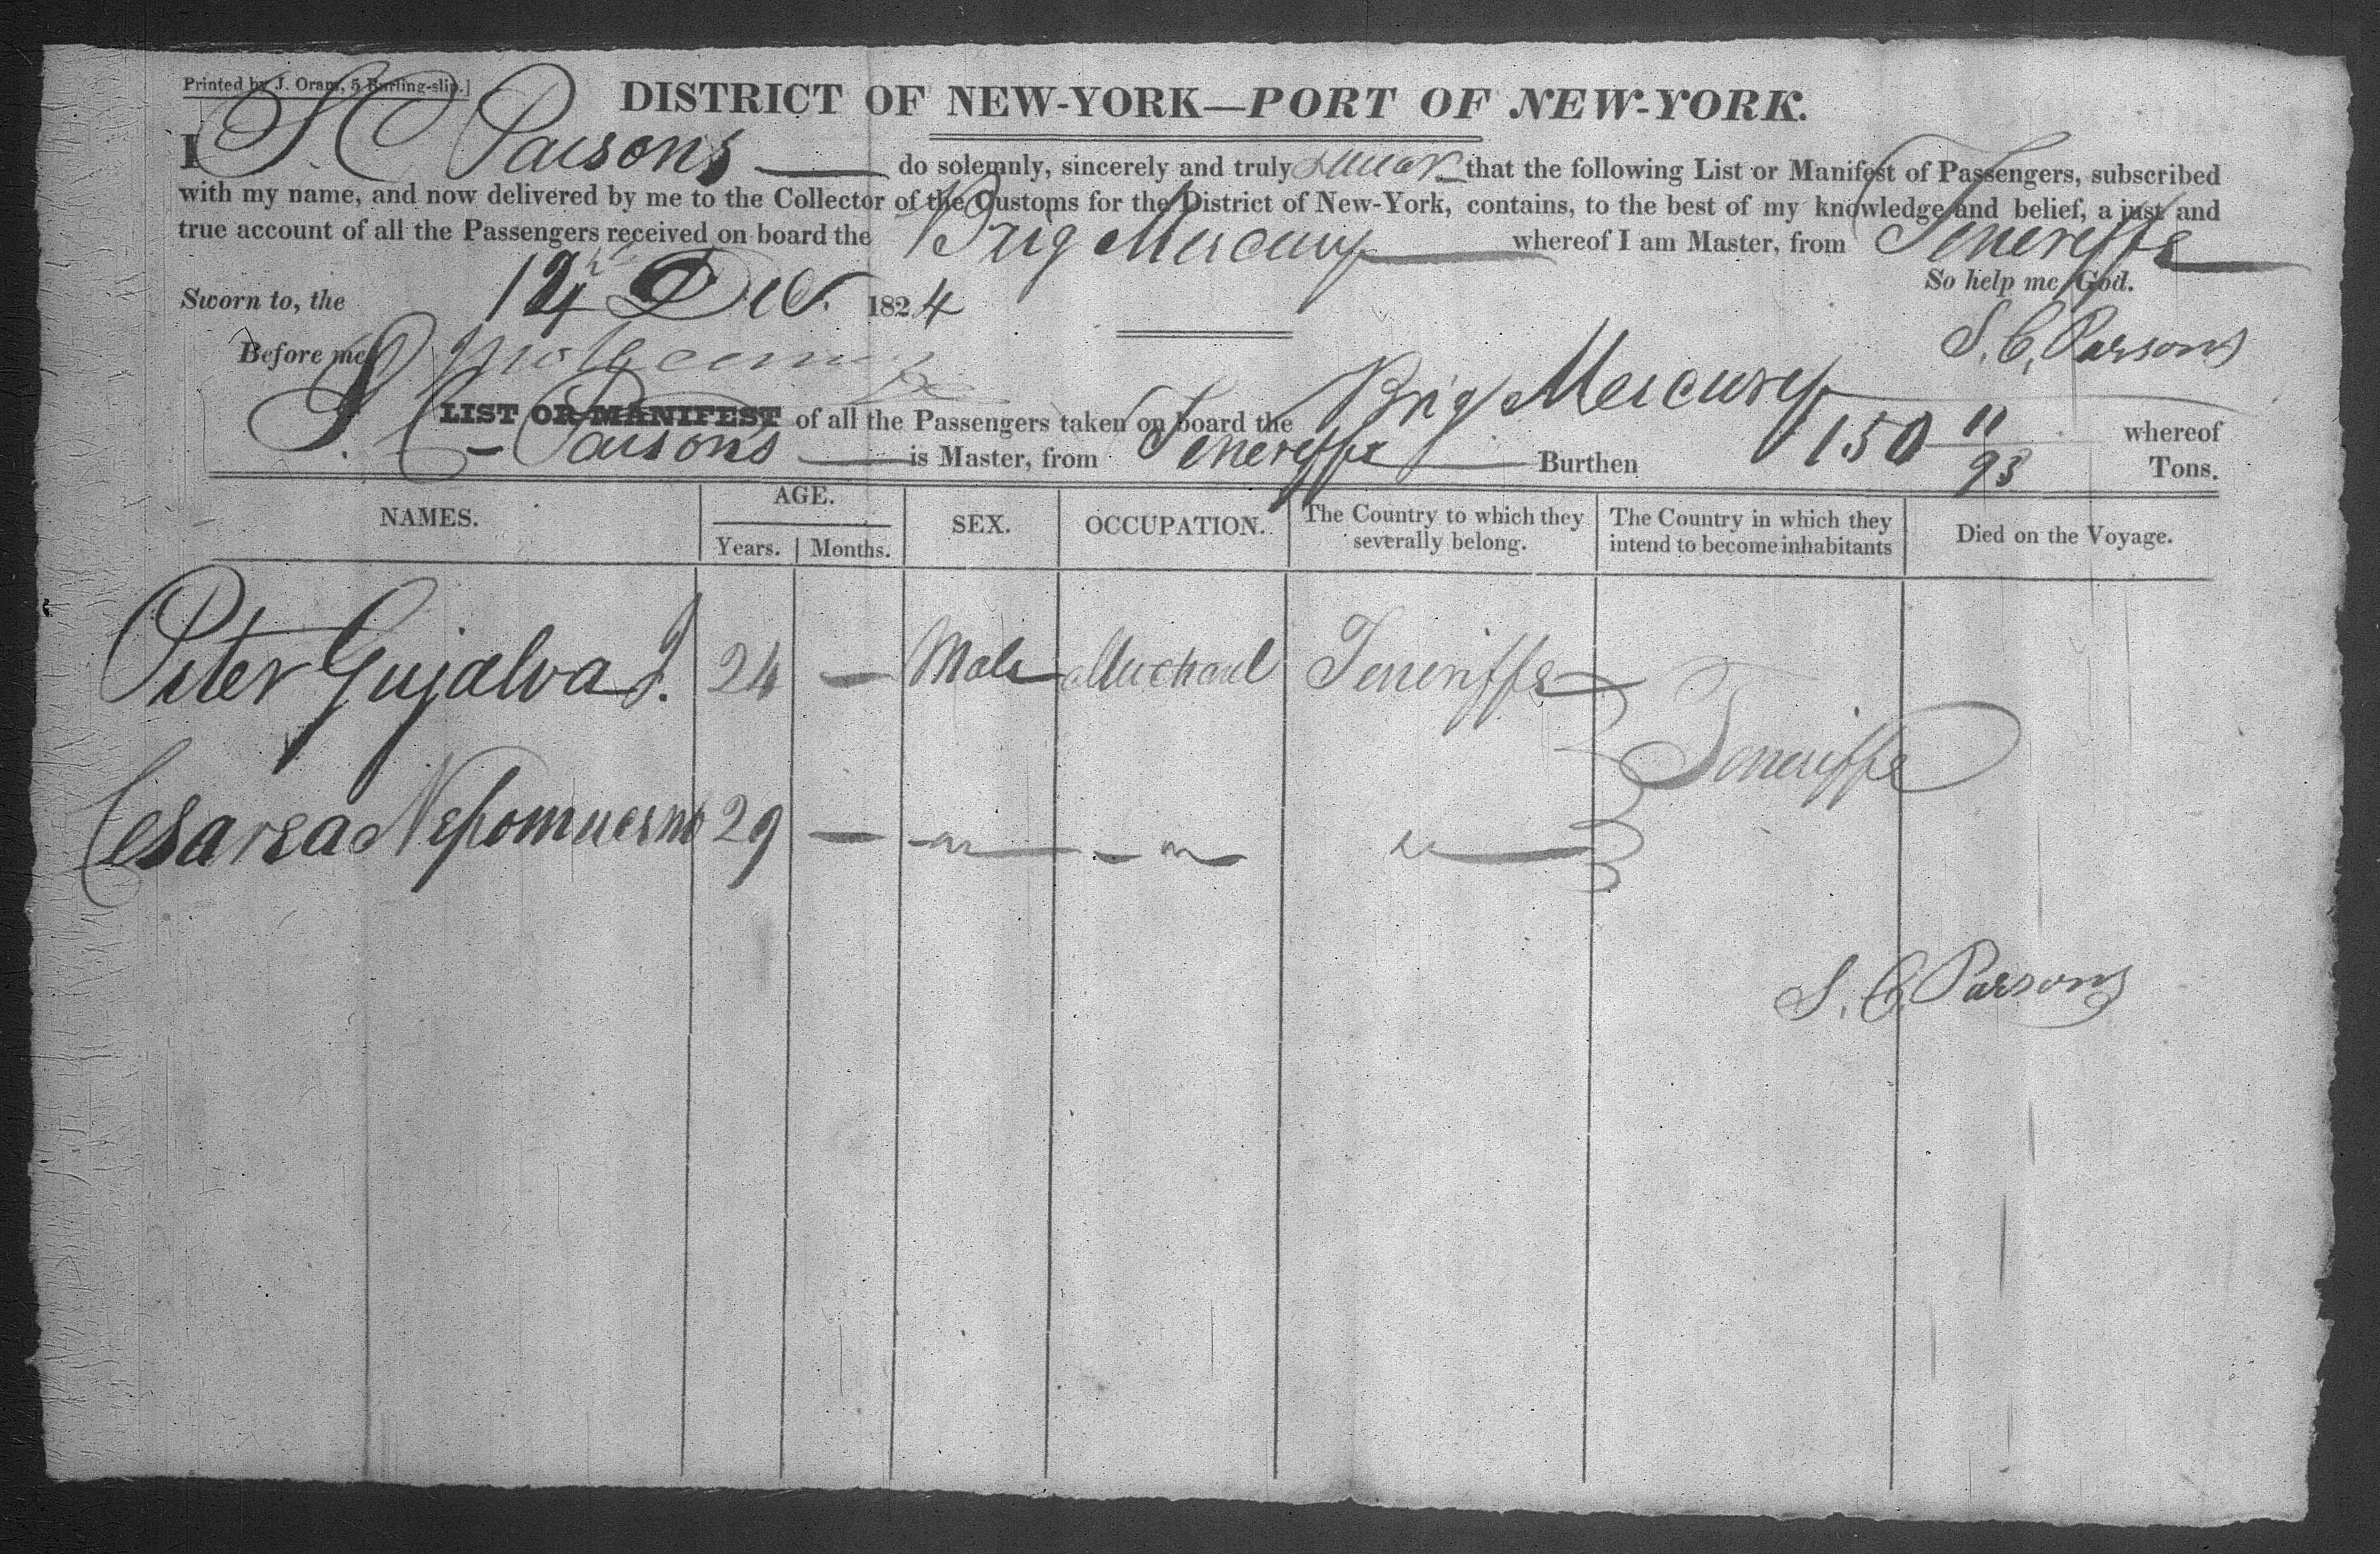 Printed by J. Oram, 5 Burling-slip.]
DISTRICT OF NEW-YORK—PORT OF NEW-YORK.
I S C Parsons — do solemnly, sincerely and truly swear that the following List or Manifest of Passengers, subscribed
with my name, and now delivered by me to the Collector of the Customs for the District of New-York, contains, to the best of my knowledge and belief, a just and
true account of all the Passengers received on board the Brig Mercury whereof I am Master, from Teneriffe
So help me God.
Sworn to, the Dec. 1824
S. C. Parsons
Before me,
LIST OR MANIFEST of all the Passengers taken on board the Brig Mercury whereof
S. C. Parsons is Master, from Teneriffe Burthen 150 11/95 Tons.
NAMES. AGE. SEX. OCCUPATION. The Country to which they severally belong. The Country in which they intend to become inhabitants Died on the Voyage.
Years. Months.
Peter Gujalva J. 24 — Male Merchant Teneriffe
Teneriffe
Cesarea Nepomuceno 29 — " " "
S. C. Parsons